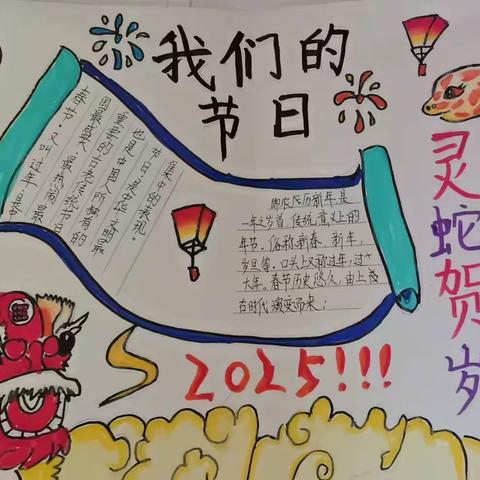 我们的
节日
春节,又叫过年,是中
国最盛大、最热闹、最
重要的古老传统节日
也是中国人所独有的
节日,是中华文明最
集中的表现。
即农历新年,是
一年之岁首,传统意义上的
年节。俗称新春、新年、
岁旦等。口头上又称过年、过
大年。春节历史悠久,由上古
在时代演变而来:
灵蛇贺岁
2025!!!